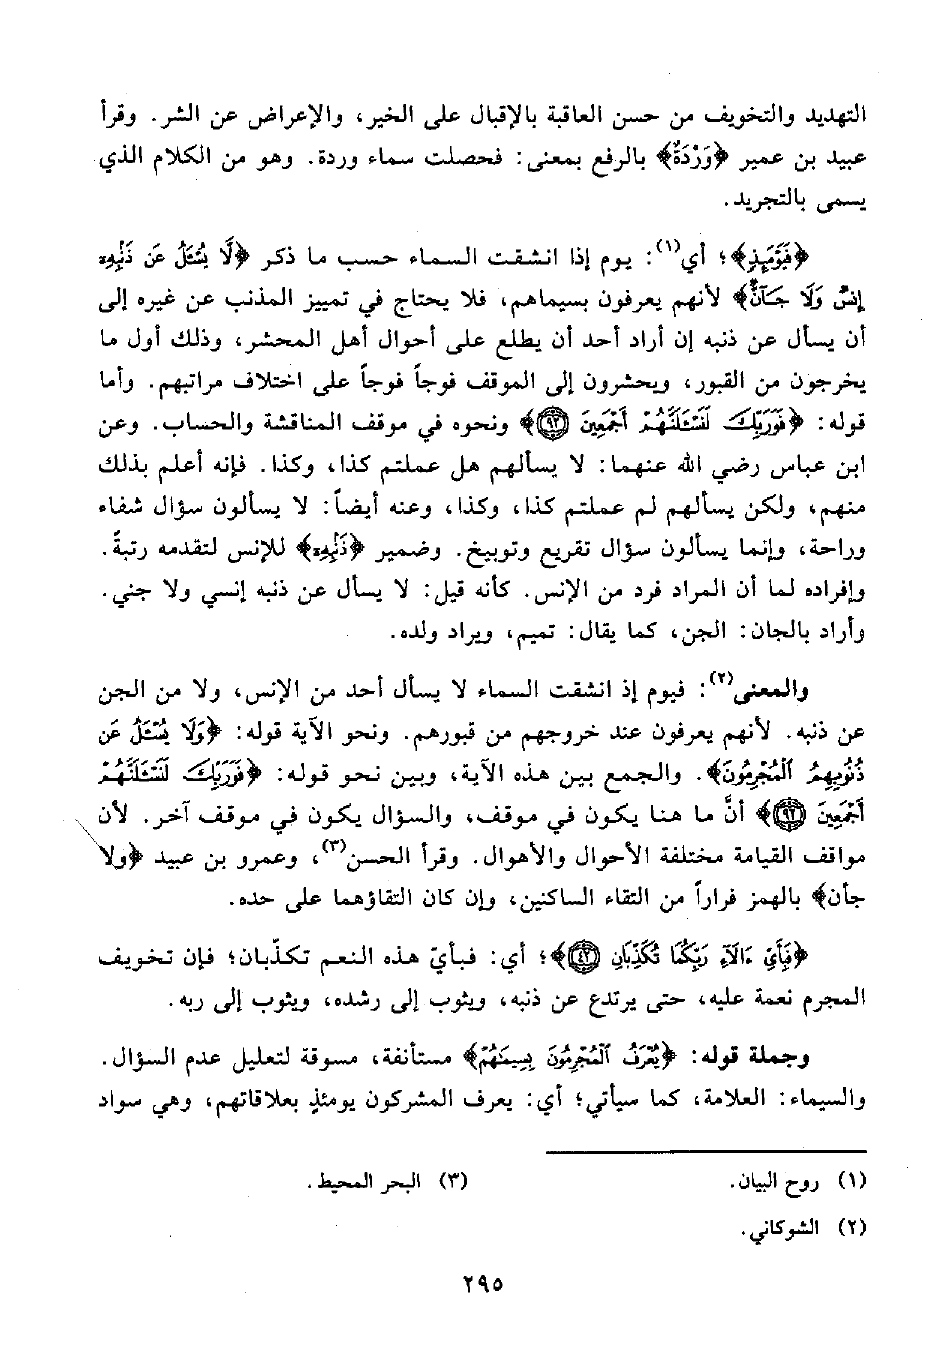 التهديد والتخويف من حسن العاقبة بالإقبال على الخير، والإعراض عن الشر. وقرأ
عبيد بن عمير ﴿وَرْدَةٌ﴾ بالرفع بمعنى: فحصلت سماء وردة. وهو من الكلام الذي
يسمى بالتجريد.
﴿فَيَوْمَئِذٍ﴾؛ أي(١): يوم إذا انشقت السماء حسب ما ذكر ﴿لَّا يُسْـَٔلُ عَن ذَنۢبِهِۦٓ
إِنسٌ وَلَا جَآنٌّ﴾ لأنهم يعرفون بسيماهم، فلا يحتاج في تمييز المذنب عن غيره إلى
أن يسأل عن ذنبه إن أراد أحد أن يطلع على أحوال أهل المحشر، وذلك أول ما
يخرجون من القبور، ويحشرون إلى الموقف فوجاً فوجاً على اختلاف مراتبهم. وأما
قوله: ﴿فَوَرَبِّكَ لَنَسْـَٔلَنَّهُمْ أَجْمَعِينَ ٩٢﴾ ونحوه في موقف المناقشة والحساب. وعن
ابن عباس رضي الله عنهما: لا يسألهم هل عملتم كذا، وكذا. فإنه أعلم بذلك
منهم، ولكن يسألهم لم عملتم كذا، وكذا، وعنه أيضاً: لا يسألون سؤال شفاء
وراحة، وإنما يسألون سؤال تقريع وتوبيخ. وضمير ﴿ذَنۢبِهِۦٓ﴾ للإنس لتقدمه رتبةً.
وإفراده لما أن المراد فرد من الإنس. كأنه قيل: لا يسأل عن ذنبه إنسي ولا جني.
وأراد بالجان: الجن، كما يقال: تميم، ويراد ولده.
والمعنى(٢): فيوم إذ انشقت السماء لا يسأل أحد من الإنس، ولا من الجن
عن ذنبه. لأنهم يعرفون عند خروجهم من قبورهم. ونحو الآية قوله: ﴿وَلَا يُسْـَٔلُ عَن
ذُنُوبِهِمُ ٱلْمُجْرِمُونَ﴾. والجمع بين هذه الآية، وبين نحو قوله: ﴿فَوَرَبِّكَ لَنَسْـَٔلَنَّهُمْ
أَجْمَعِينَ ٩٢﴾ أنَّ ما هنا يكون في موقف، والسؤال يكون في موقف آخر. لأن
مواقف القيامة مختلفة الأحوال والأهوال. وقرأ الحسن(٣)، وعمرو بن عبيد ﴿ولا
جأن﴾ بالهمز فراراً من التقاء الساكنين، وإن كان التقاؤهما على حده.
﴿فَبِأَيِّ ءَالَآءِ رَبِّكُمَا تُكَذِّبَانِ ٤٢﴾؛ أي: فبأيّ هذه النعم تكذّبان؛ فإن تخويف
المجرم نعمة عليه، حتى يرتدع عن ذنبه، ويثوب إلى رشده، ويثوب إلى ربه.
وجملة قوله: ﴿يُعْرَفُ ٱلْمُجْرِمُونَ بِسِيمَٰهُمْ﴾ مستأنفة، مسوقة لتعليل عدم السؤال.
والسيماء: العلامة، كما سيأتي؛ أي: يعرف المشركون يومئذٍ بعلاقاتهم، وهي سواد
(١) روح البيان.
(٢) الشوكاني.
(٣) البحر المحيط.
٢٩٥